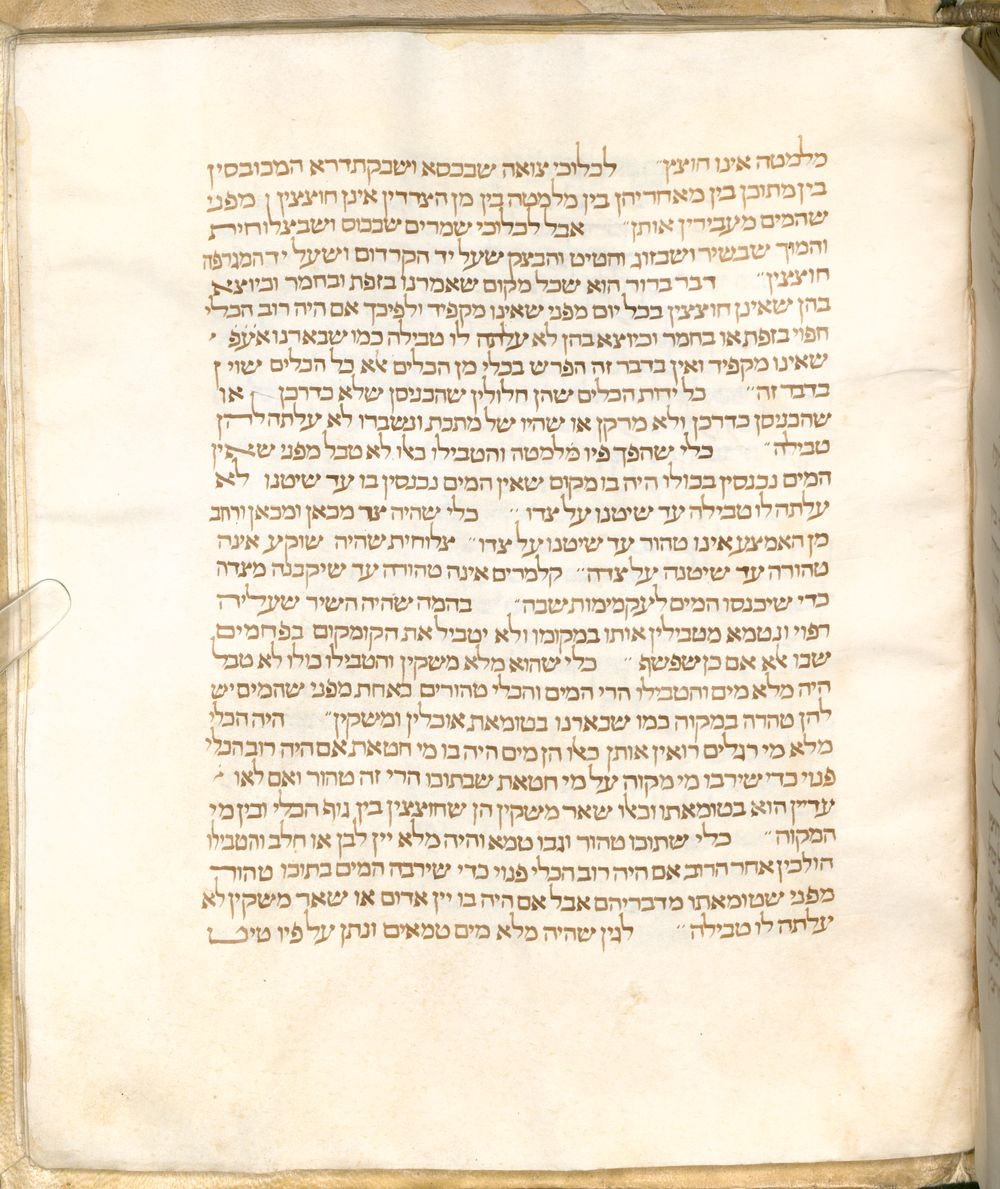 מלמטה אינו חוצץ״ לכלוכי צואה שבכסא ושבקתדרא המכובסין
בין מתוכן בין מאחריהן בין מלמטה בין מן הצדדין אינן חוצצין מפני
שהמים מעבירין אותן״ אבל לכלוכי שמרים שבכוס ושבצלוחית
והמוך שבשיר ושבזוג והטיט והבצק שעל יד הקרדום ושעל יד המגרפה
חוצצין״ דבר ברור הוא שכל מקום שאמרנו בזפת ובחמר וכיוצא
בהן שאינן חוצצין בכל יום מפני שאינו מקפיד ולפיכך אם היה רוב הכלי
חפוי בזפת או בחמר וכיוצא בהן לא עלתה לו טבילה כמו שבארנו אעפ
שאינו מקפיד ואין בדבר זה הפרש בכלי מן הכלים אלא כל הכלים שוין
בדבר זה״ כל ידות הכלים שהן חלולין שהכניסן שלא כדרכן או
שהכניסן כדרכן ולא מרקן או שהיו של מתכת ונשברו לא עלתה להן
טבילה״ כלי שהפך פיו למטה והטבילו כאלו לא טבל מפני שאין
המים נכנסין בכולו היה בו מקום שאין המים נכנסין בו עד שיטנו לא
עלתה לו טבילה עד שיטנו על צדו״ כלי שהיה צד מכאן ומכאן ורחב
מן האמצע אינו טהור עד שיטנו על צדו״ צלוחית שהיה שוקע אינה
טהורה עד שיטנה על צדה״ קלמרים אינה טהורה עד שיקבנה מצדה
כדי שיכנסו המים לעקמימות שבה״ בהמה שהיה השיר שעליה
רפוי ונטמא מטבילין אותו במקומו ולא יטביל את הקומקום בפחמים
שבו אלא אם כן שפשף״ כלי שהוא מלא משקין והטבילו כולו לא טבל
היה מלא מים והטבילו הרי המים והכלי טהורים כאחת מפני שהמים יש
להן טהרה במקוה כמו שבארנו בטומאת אוכלין ומשקין״ היה הכלי
מלא מי רגלים רואין אותן כאלו הן מים היה בו מי חטאת אם היה רוב הכלי
פנוי כדי שירבו מי מקוה על מי חטאת שבתוכו הרי זה טהור ואם לאו
עדיין הוא בטומאתו וכאלו שאר משקין הן שחוצצין בין גוף הכלי ובין מי
המקוה״ כלי שתוכו טהור וגבו טמא והיה מלא יין לבן או חלב והטבילו
הולכין אחר הרוב אם היה רוב הכלי פנוי כדי שירבה המים בתוכו טהור
מפני שטומאתו מדבריהם אבל אם היה בו יין אדום או שאר משקין לא
עלתה לו טבילה״ לגין שהיה מלא מים טמאים ונתן על פיו טיט